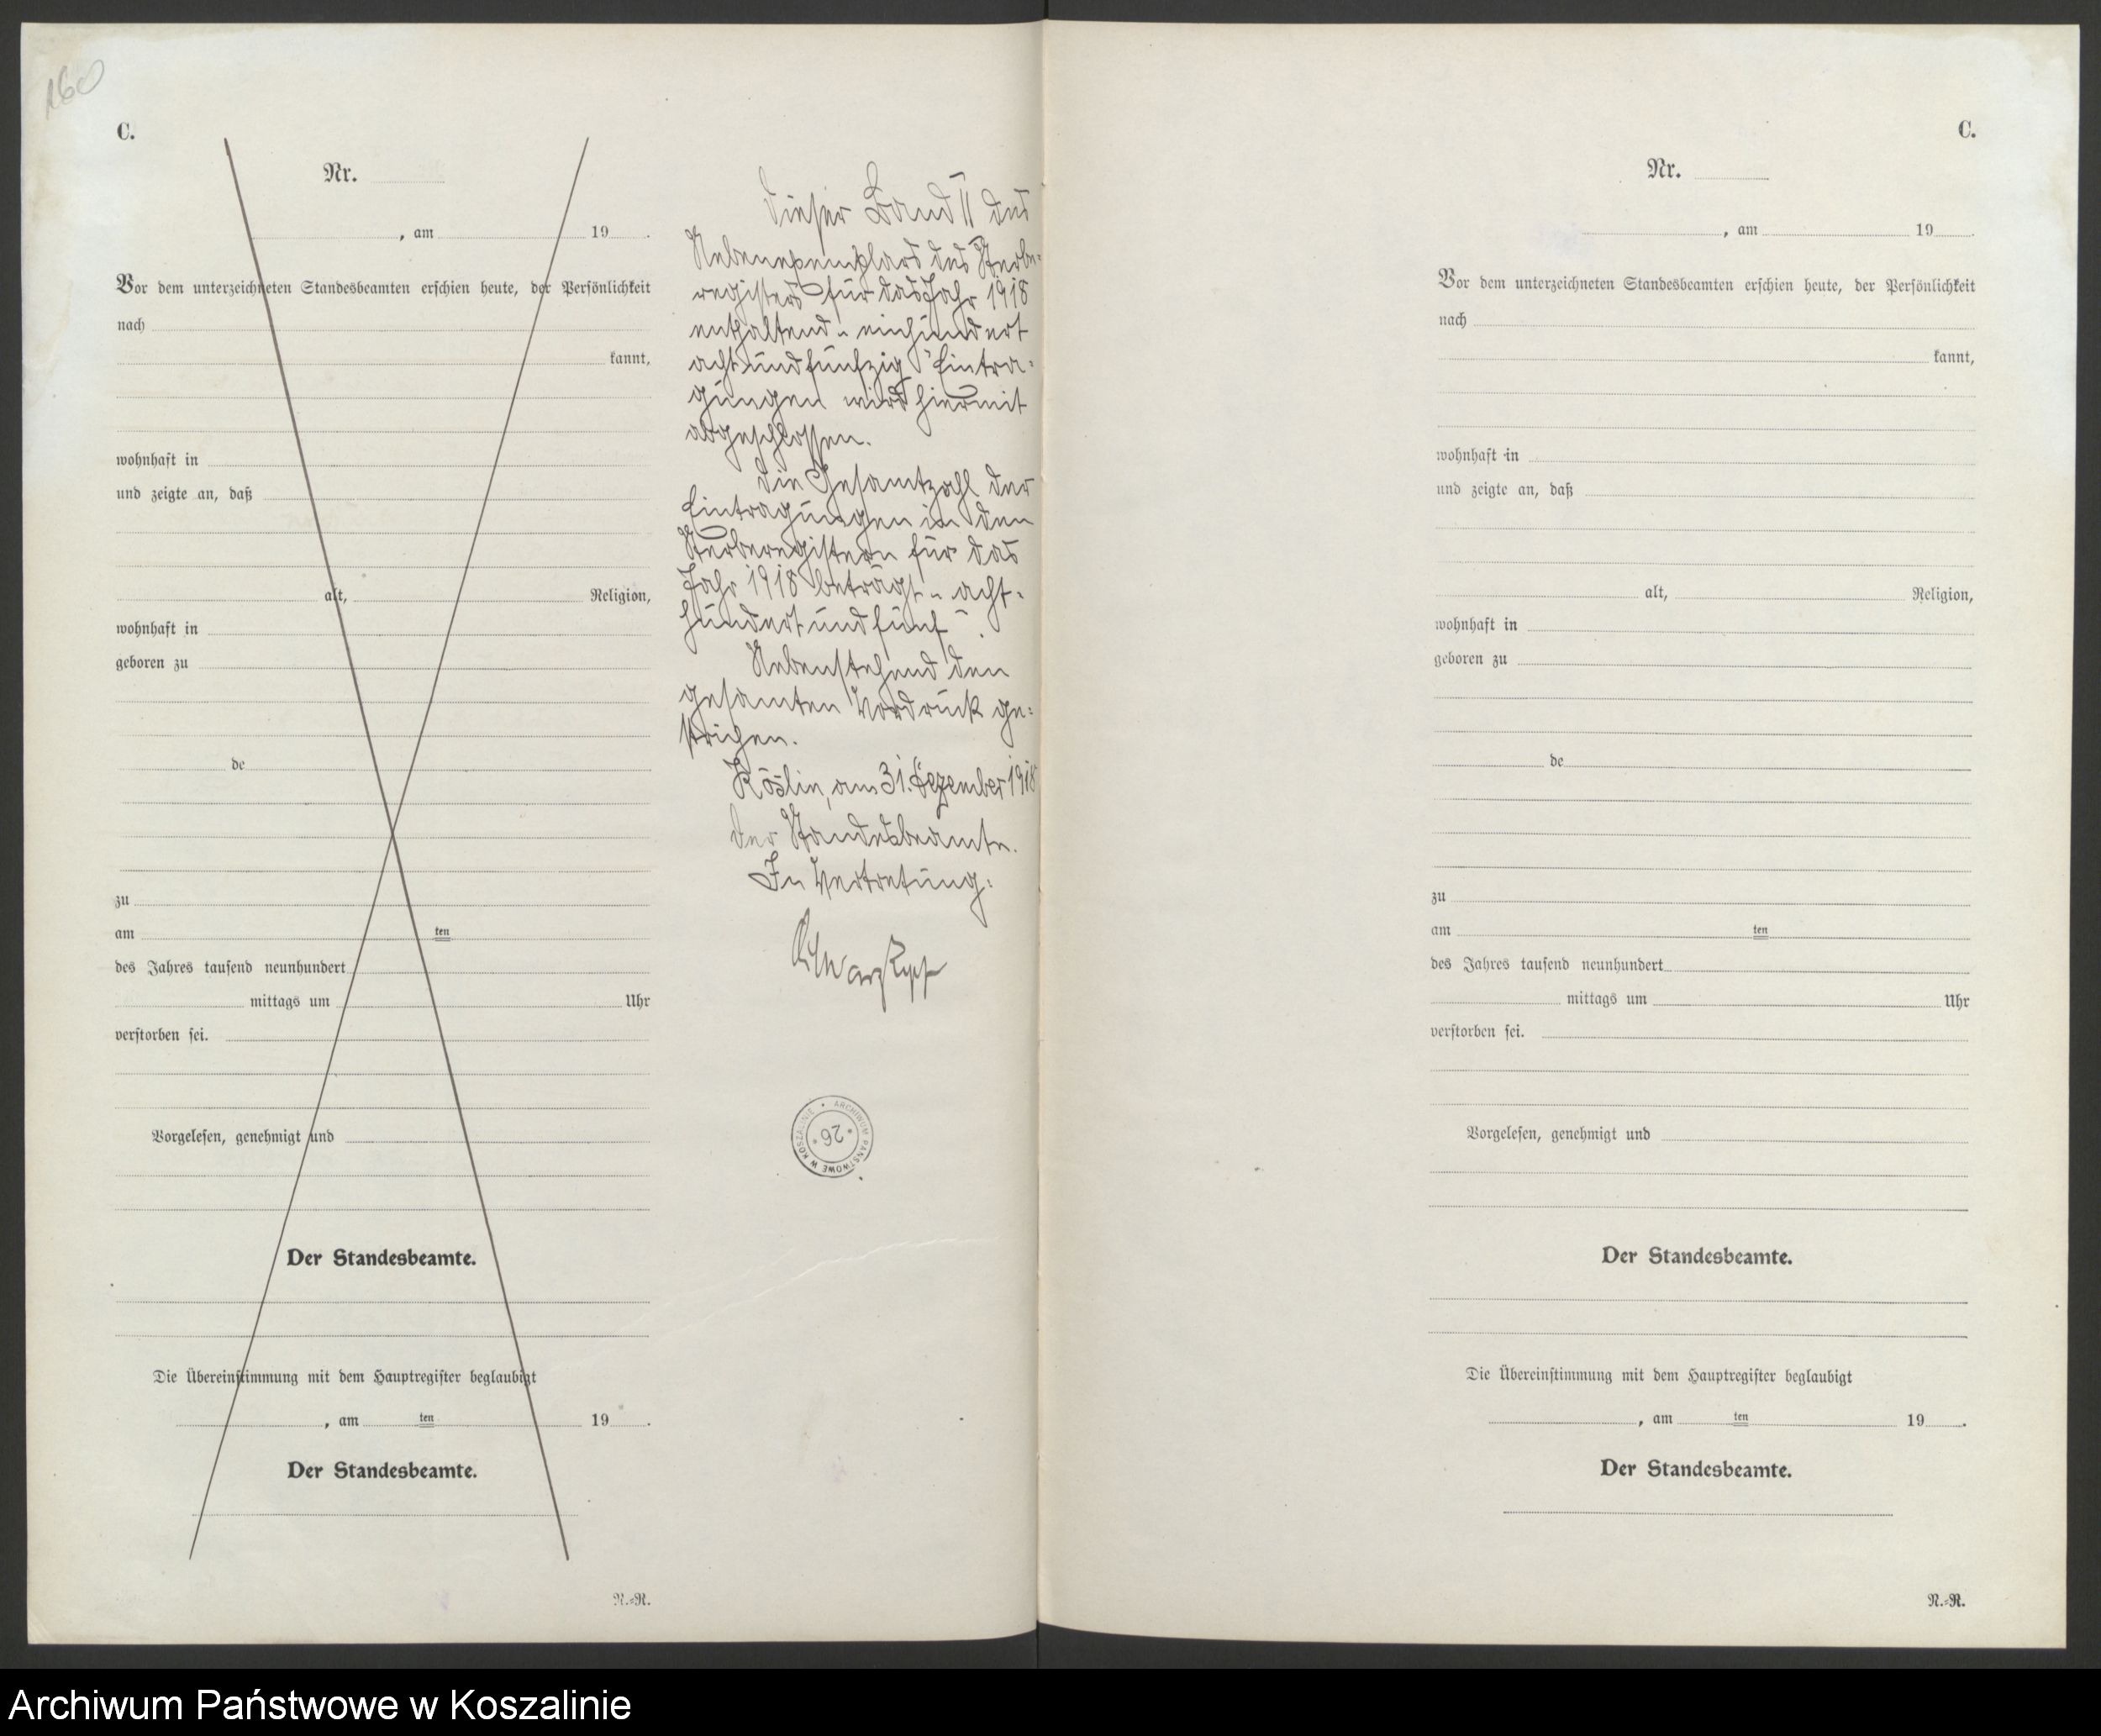 160
C.
Nr.
, am 19 .
Vor dem unterzeichneten Standesbeamten erschien heute, der Persönlichkeit
nach
kannt,
wohnhaft in
und zeigte an, daß
alt, Religion,
wohnhaft in
geboren zu
de
zu
am ten
des Jahres tausend neunhundert
mittags um Uhr
verstorben sei.
Vorgelesen, genehmigt und
Der Standesbeamte.
Die Übereinstimmung mit dem Hauptregister beglaubigt
, am ten 19 .
Der Standesbeamte.
N.-R.
Dieser Band II des
Nebenexemplars des Sterbe-
registers für das Jahr 1918
enthaltend „einhundert
achtundfünfzig" Eintra-
gungen wird hiermit
abgeschlossen.
Die Gesamtzahl der
Eintragungen in den
Sterberegistern für das
Jahr 1918 beträgt „acht-
hundertundfünf".
Nebenstehend den
gesamten Vordruck ge-
strichen.
Köslin, am 31. Dezember 1918
Der Standesbeamte.
In Vertretung:
ARCHIWUM PAŃSTWOWE W KOSZALINIE
26
C.
Nr.
, am 19 .
Vor dem unterzeichneten Standesbeamten erschien heute, der Persönlichkeit
nach
kannt,
wohnhaft in
und zeigte an, daß
alt, Religion,
wohnhaft in
geboren zu
de
zu
am ten
des Jahres tausend neunhundert
mittags um Uhr
verstorben sei.
Vorgelesen, genehmigt und
Der Standesbeamte.
Die Übereinstimmung mit dem Hauptregister beglaubigt
, am ten 19 .
Der Standesbeamte.
N.-R.
Archiwum Państwowe w Koszalinie